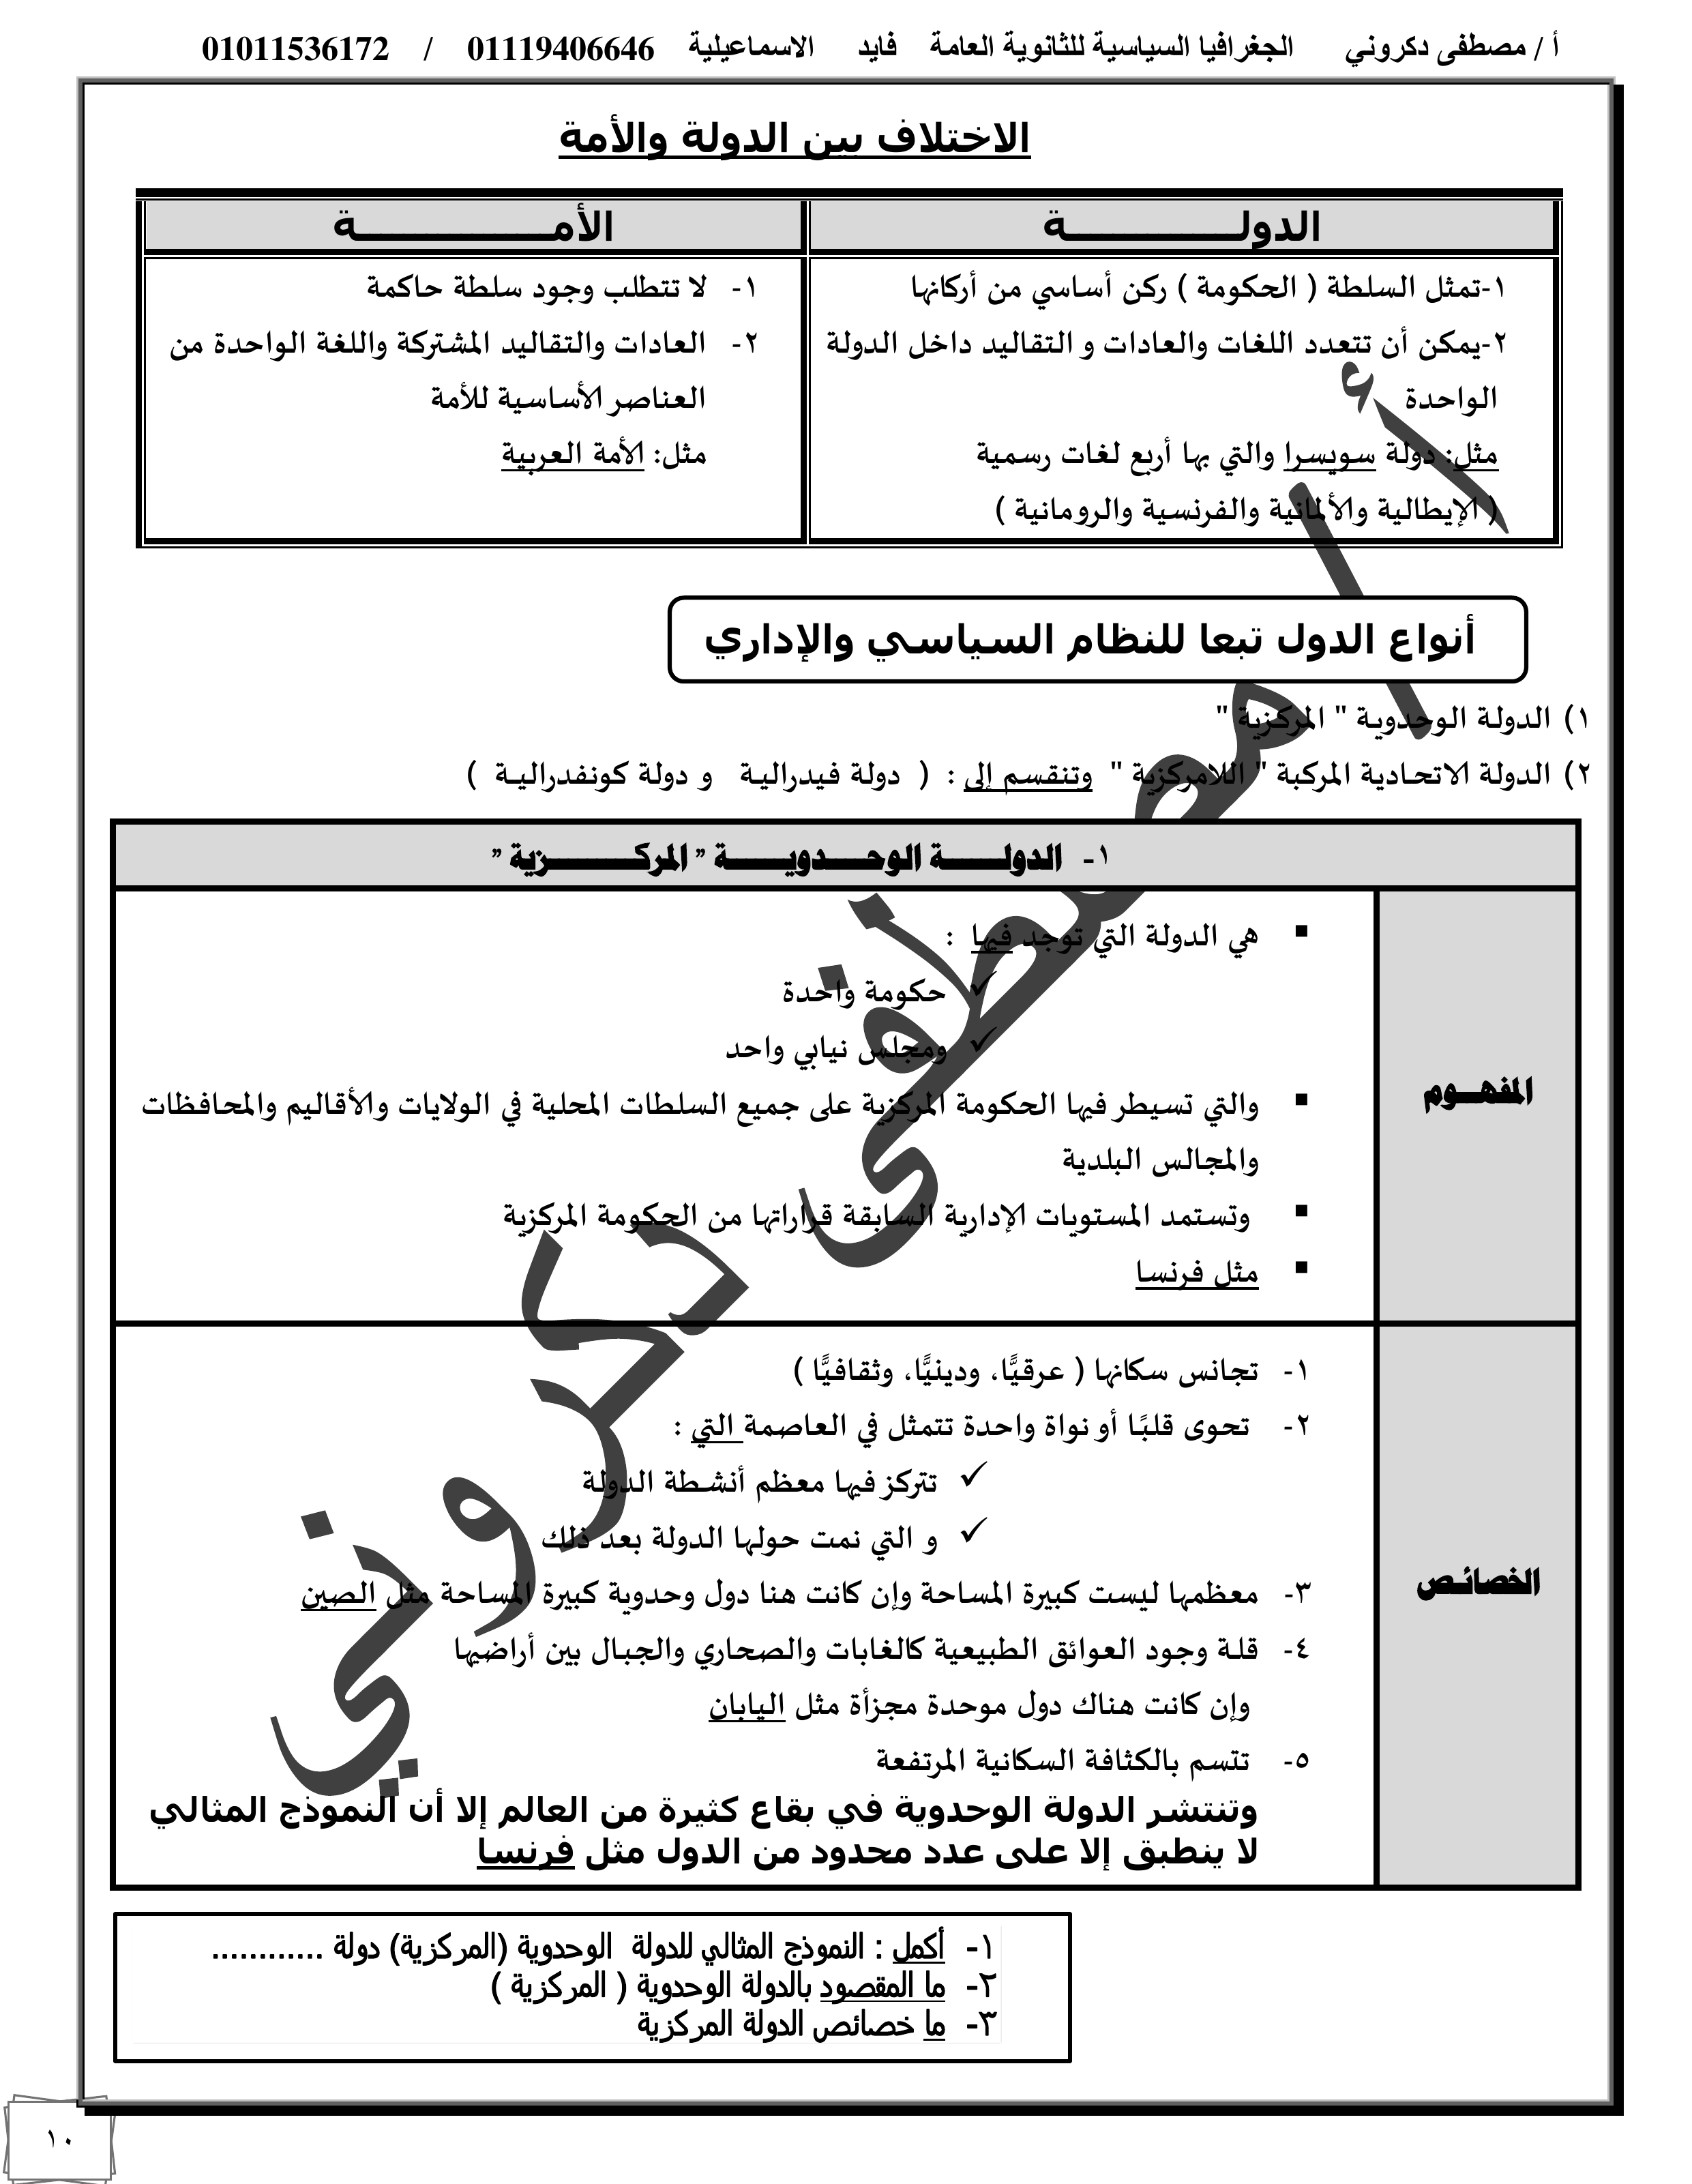 أ / مصطفى دكروني الجغرافيا السياسية للثانوية العامة فايد الاسماعيلية 01119406646 / 01011536172
الاختلاف بين الدولة والأمة
الدولـــــــــــــة
الأمـــــــــــــــة
١-تمثل السلطة ( الحكومة ) ركن أساسي من أركانها
٢-يمكن أن تتعدد اللغات والعادات و التقاليد داخل الدولة
الواحدة
مثل: دولة سويسرا والتي بها أربع لغات رسمية
( الإيطالية والألمانية والفرنسية والرومانية )
١- لا تتطلب وجود سلطة حاكمة
٢- العادات والتقاليد المشتركة واللغة الواحدة من
العناصر الأساسية للأمة
مثل: الأمة العربية
أنواع الدول تبعا للنظام السياسي والإداري
١) الدولة الوحدوية " المركزية "
٢) الدولة الاتحادية المركبة " اللامركزية " وتنقسم إلى : ( دولة فيدرالية و دولة كونفدرالية )
١- الدولـــــــة الوحـــــدويـــــــة " المركـــــــــزية "
المفهـــوم
▪ هي الدولة التي توجد فيها :
✓ حكومة واحدة
✓ ومجلس نيابي واحد
▪ والتي تسيطر فيها الحكومة المركزية على جميع السلطات المحلية في الولايات والأقاليم والمحافظات
والمجالس البلدية
▪ وتستمد المستويات الإدارية السابقة قراراتها من الحكومة المركزية
▪ مثل فرنسا
الخصائـص
١- تجانس سكانها ( عرقيًّا، ودينيًّا، وثقافيًّا )
٢- تحوى قلبًا أو نواة واحدة تتمثل في العاصمة التي :
✓ تتركز فيها معظم أنشطة الدولة
✓ و التي نمت حولها الدولة بعد ذلك
٣- معظمها ليست كبيرة المساحة وإن كانت هنا دول وحدوية كبيرة المساحة مثل الصين
٤- قلة وجود العوائق الطبيعية كالغابات والصحاري والجبال بين أراضيها
وإن كانت هناك دول موحدة مجزأة مثل اليابان
٥- تتسم بالكثافة السكانية المرتفعة
وتنتشر الدولة الوحدوية في بقاع كثيرة من العالم إلا أن النموذج المثالي
لا ينطبق إلا على عدد محدود من الدول مثل فرنسا
١- أكمل : النموذج المثالي للدولة الوحدوية (المركزية) دولة ............
٢- ما المقصود بالدولة الوحدوية ( المركزية )
٣- ما خصائص الدولة المركزية
أ / مصطفى دكروني
١٠